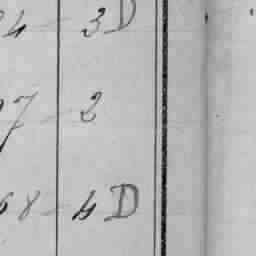 4 - 3D
7 - 2
68 - 4D